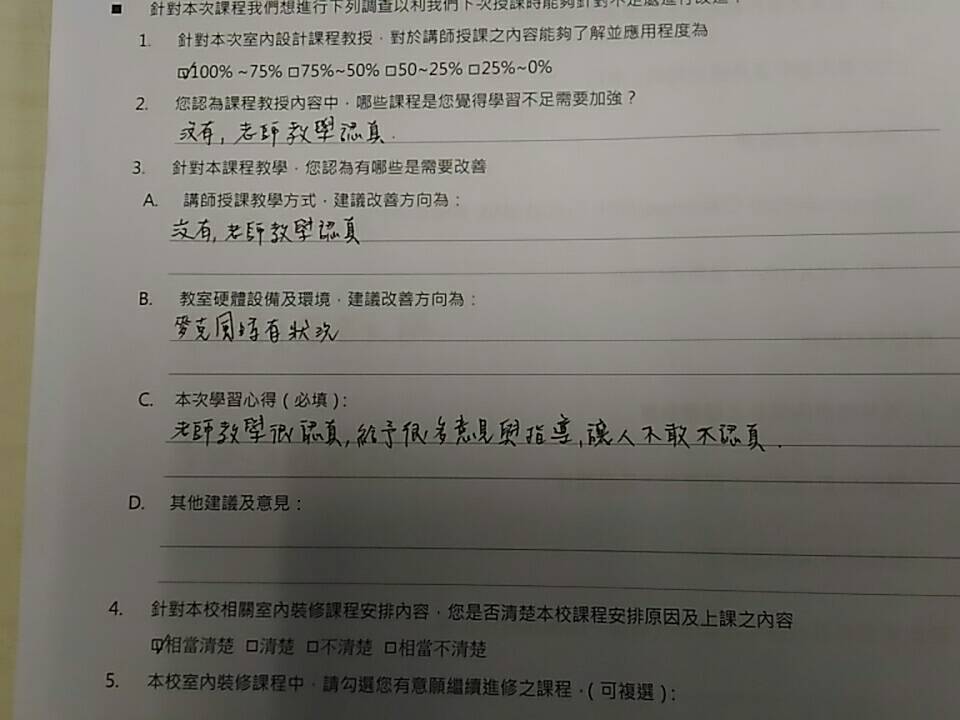 ■ 針對本次課程我們想進行下列調查以利我們下次授課時能夠針對不足處進行改進：
1. 針對本次室內設計課程教授，對於講師授課之內容能夠了解並應用程度為
☑100% ~75% □75%~50% □50~25% □25%~0%
2. 您認為課程教授內容中，哪些課程是您覺得學習不足需要加強？
沒有, 老師教學認真.
3. 針對本課程教學，您認為有哪些是需要改善
A. 講師授課教學方式，建議改善方向為：
沒有, 老師教學認真
B. 教室硬體設備及環境，建議改善方向為：
麥克風時有狀況
C. 本次學習心得（必填）：
老師教學很認真, 給予很多意見與指導, 讓人不敢不認真.
D. 其他建議及意見：
4. 針對本校相關室內裝修課程安排內容，您是否清楚本校課程安排原因及上課之內容
☑相當清楚 □清楚 □不清楚 □相當不清楚
5. 本校室內裝修課程中，請勾選您有意願繼續進修之課程，(可複選)：